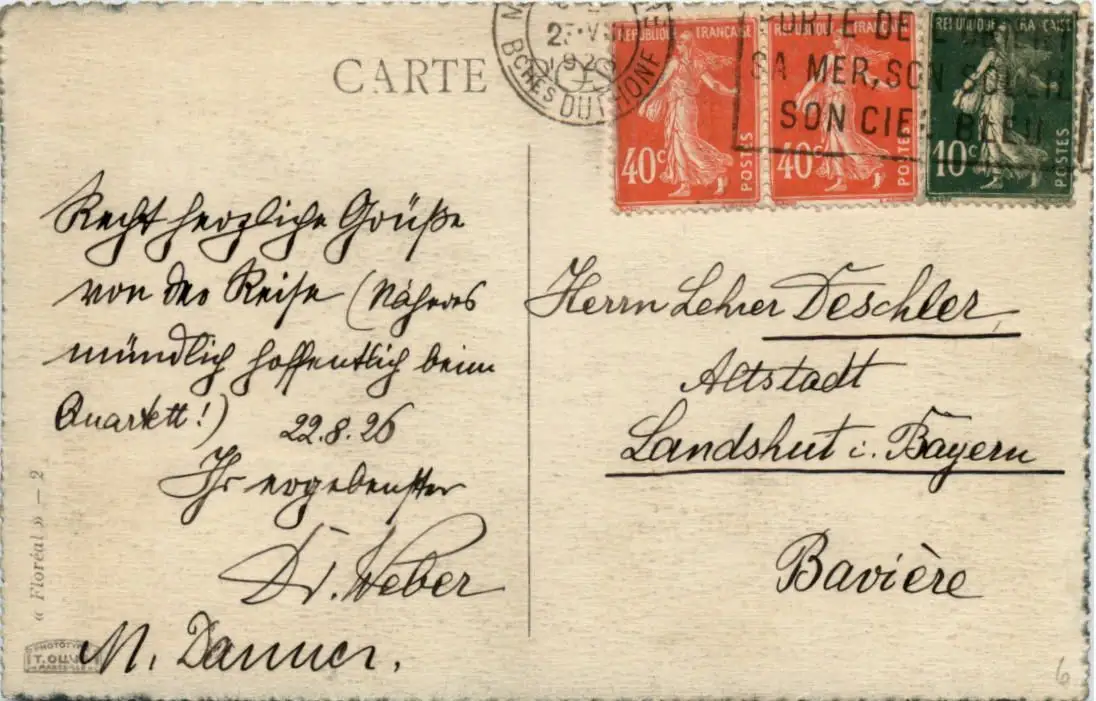 CARTE
BCHES DU RHONE
PORTE DE L'ORIENT
SA MER, SON SOLEIL
SON CIEL BLEU
REPUBLIQUE FRANÇAISE
40c
POSTES
REPUBLIQUE FRANÇAISE
40c
POSTES
REPUBLIQUE FRANÇAISE
10c
POSTES
Recht herzliche Grüße
von der Reise (Näheres
mündlich hoffentlich beim
Quartett!)
22.8.26
Ihr ergebenster
Dr. Weber
M. Danner.
Herrn Lehrer Deschler,
Altstadt
Landshut i. Bayern
Bavière
« Floréal » — 2
PHOTOTYPIE
T. OLLIVE
MARSEILLE
6